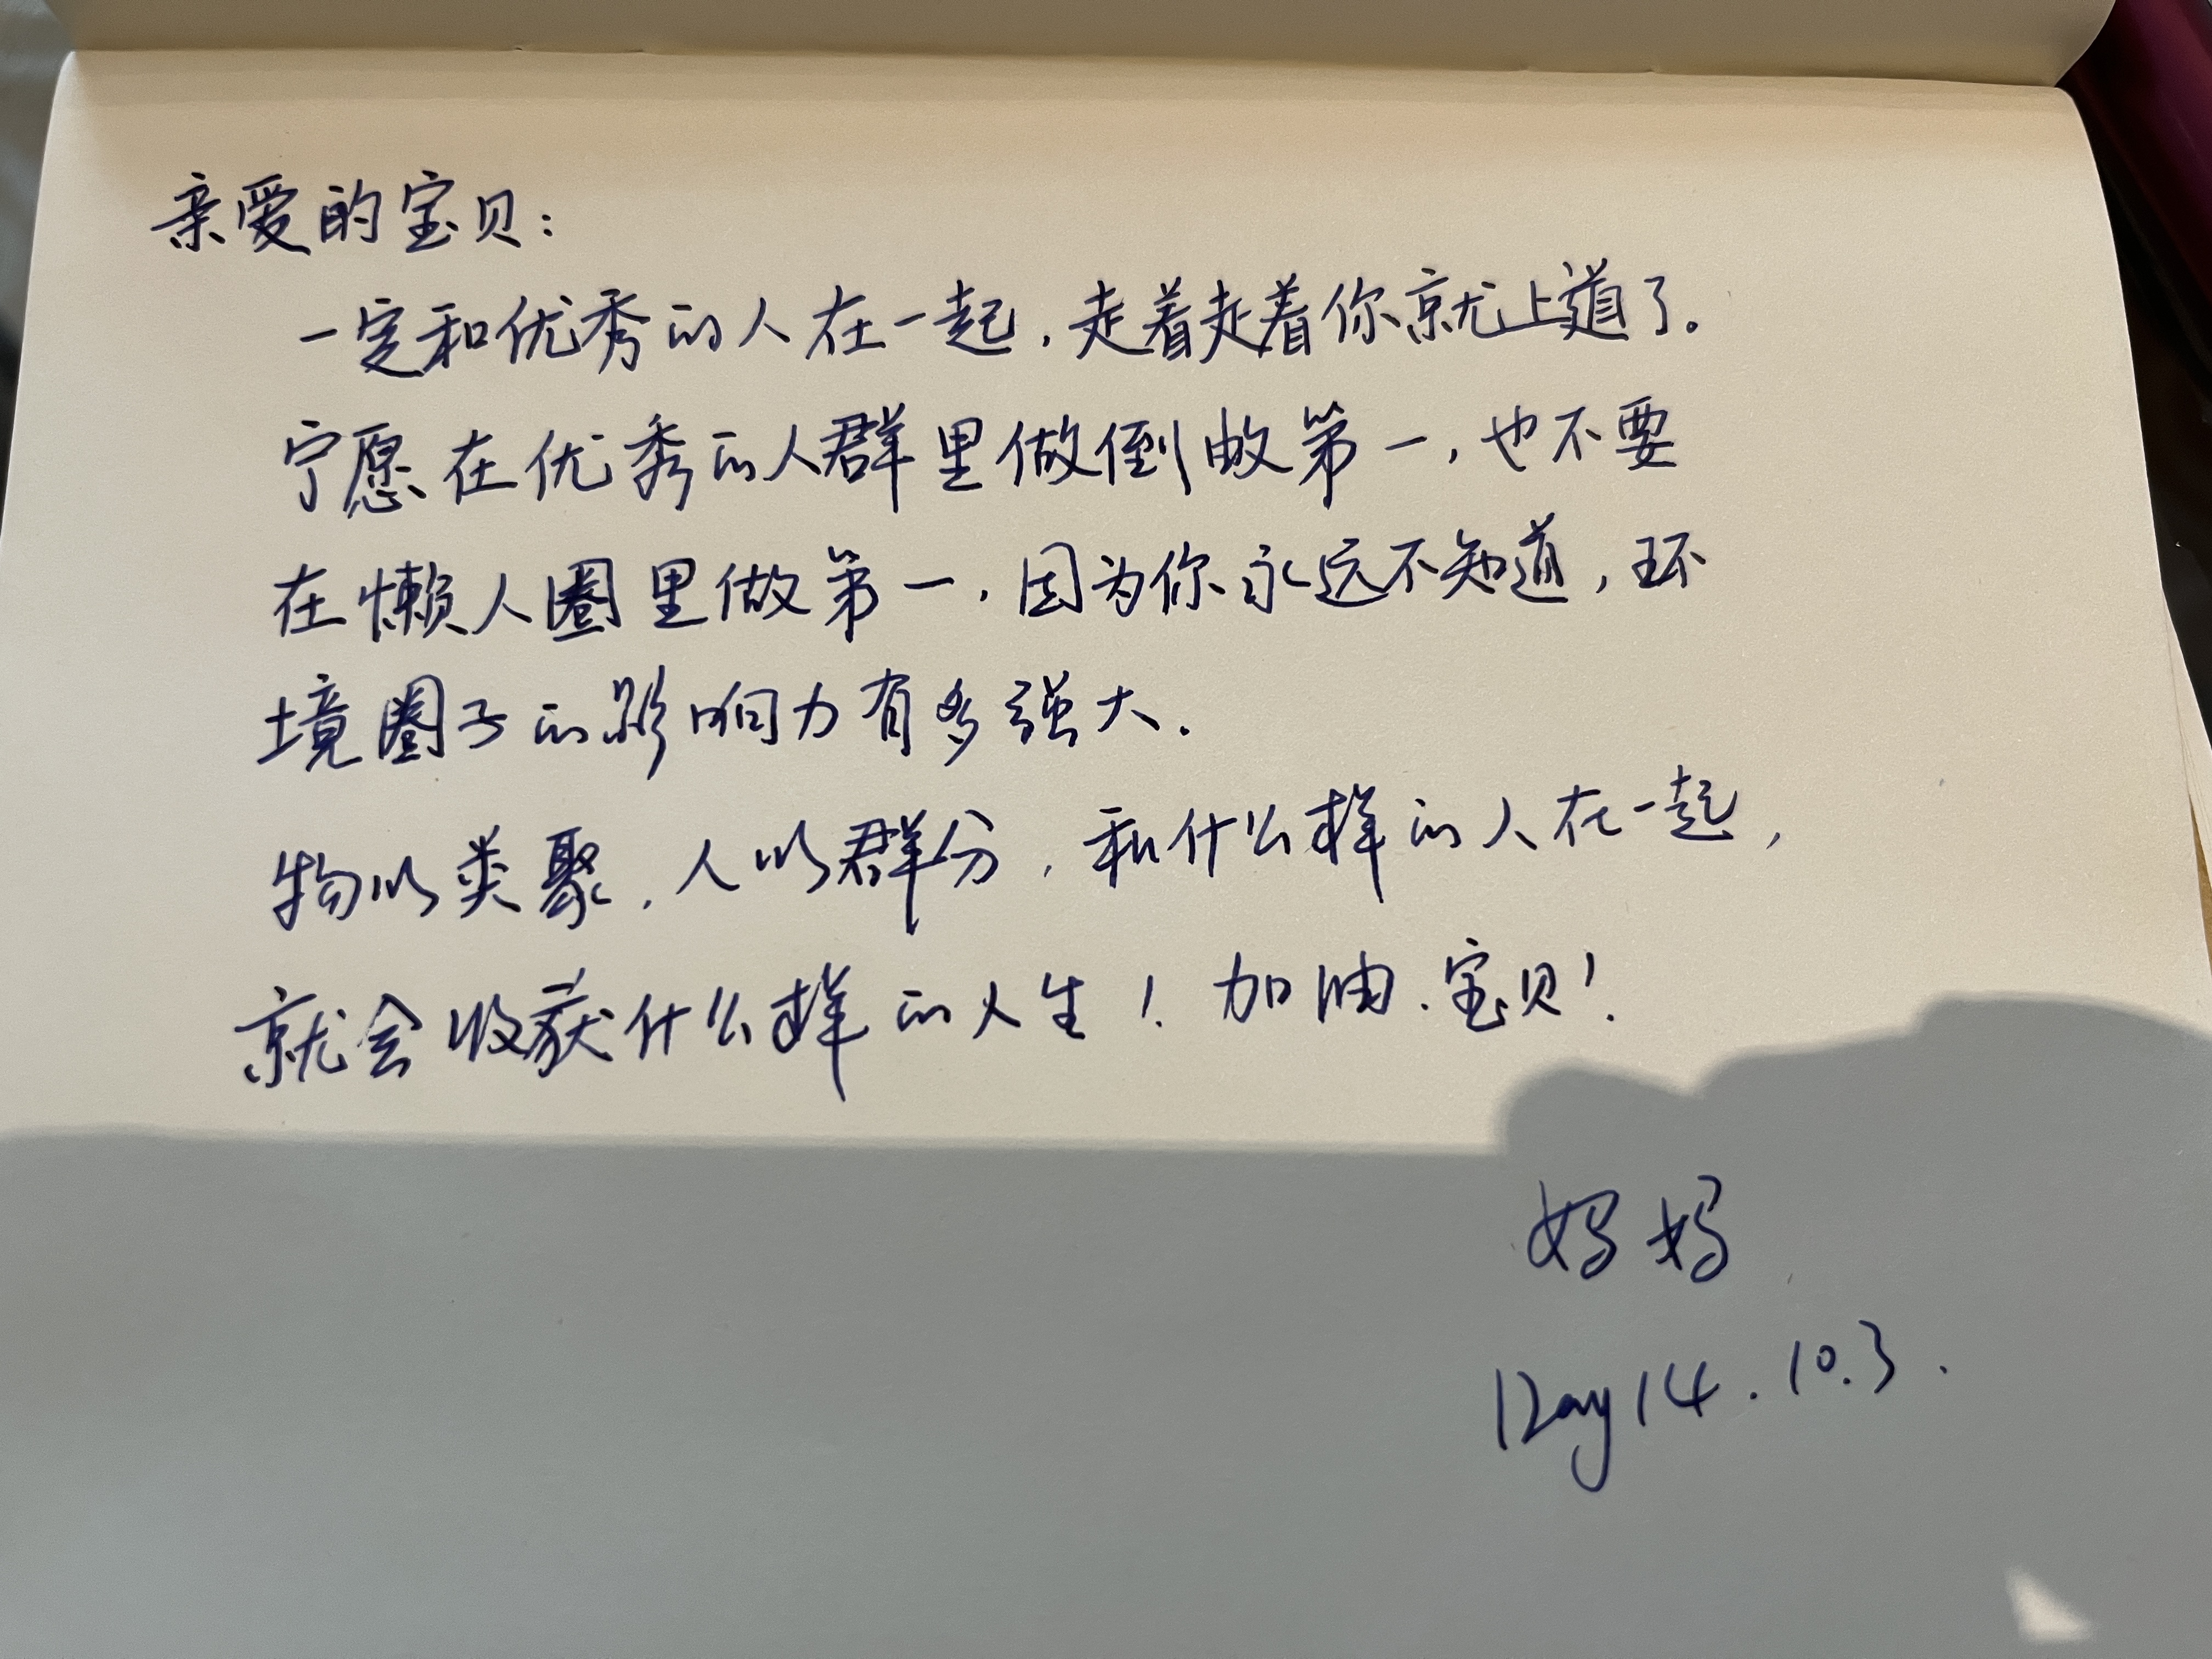 亲爱的宝贝：
一定和优秀的人在一起，走着走着你就上道了。
宁愿在优秀的人群里做倒数第一，也不要
在懒人圈里做第一，因为你永远不知道，环
境圈子的影响力有多强大.
物以类聚，人以群分，和什么样的人在一起，
就会收获什么样的人生！加油、宝贝！
妈妈
Day 14. 10.3.